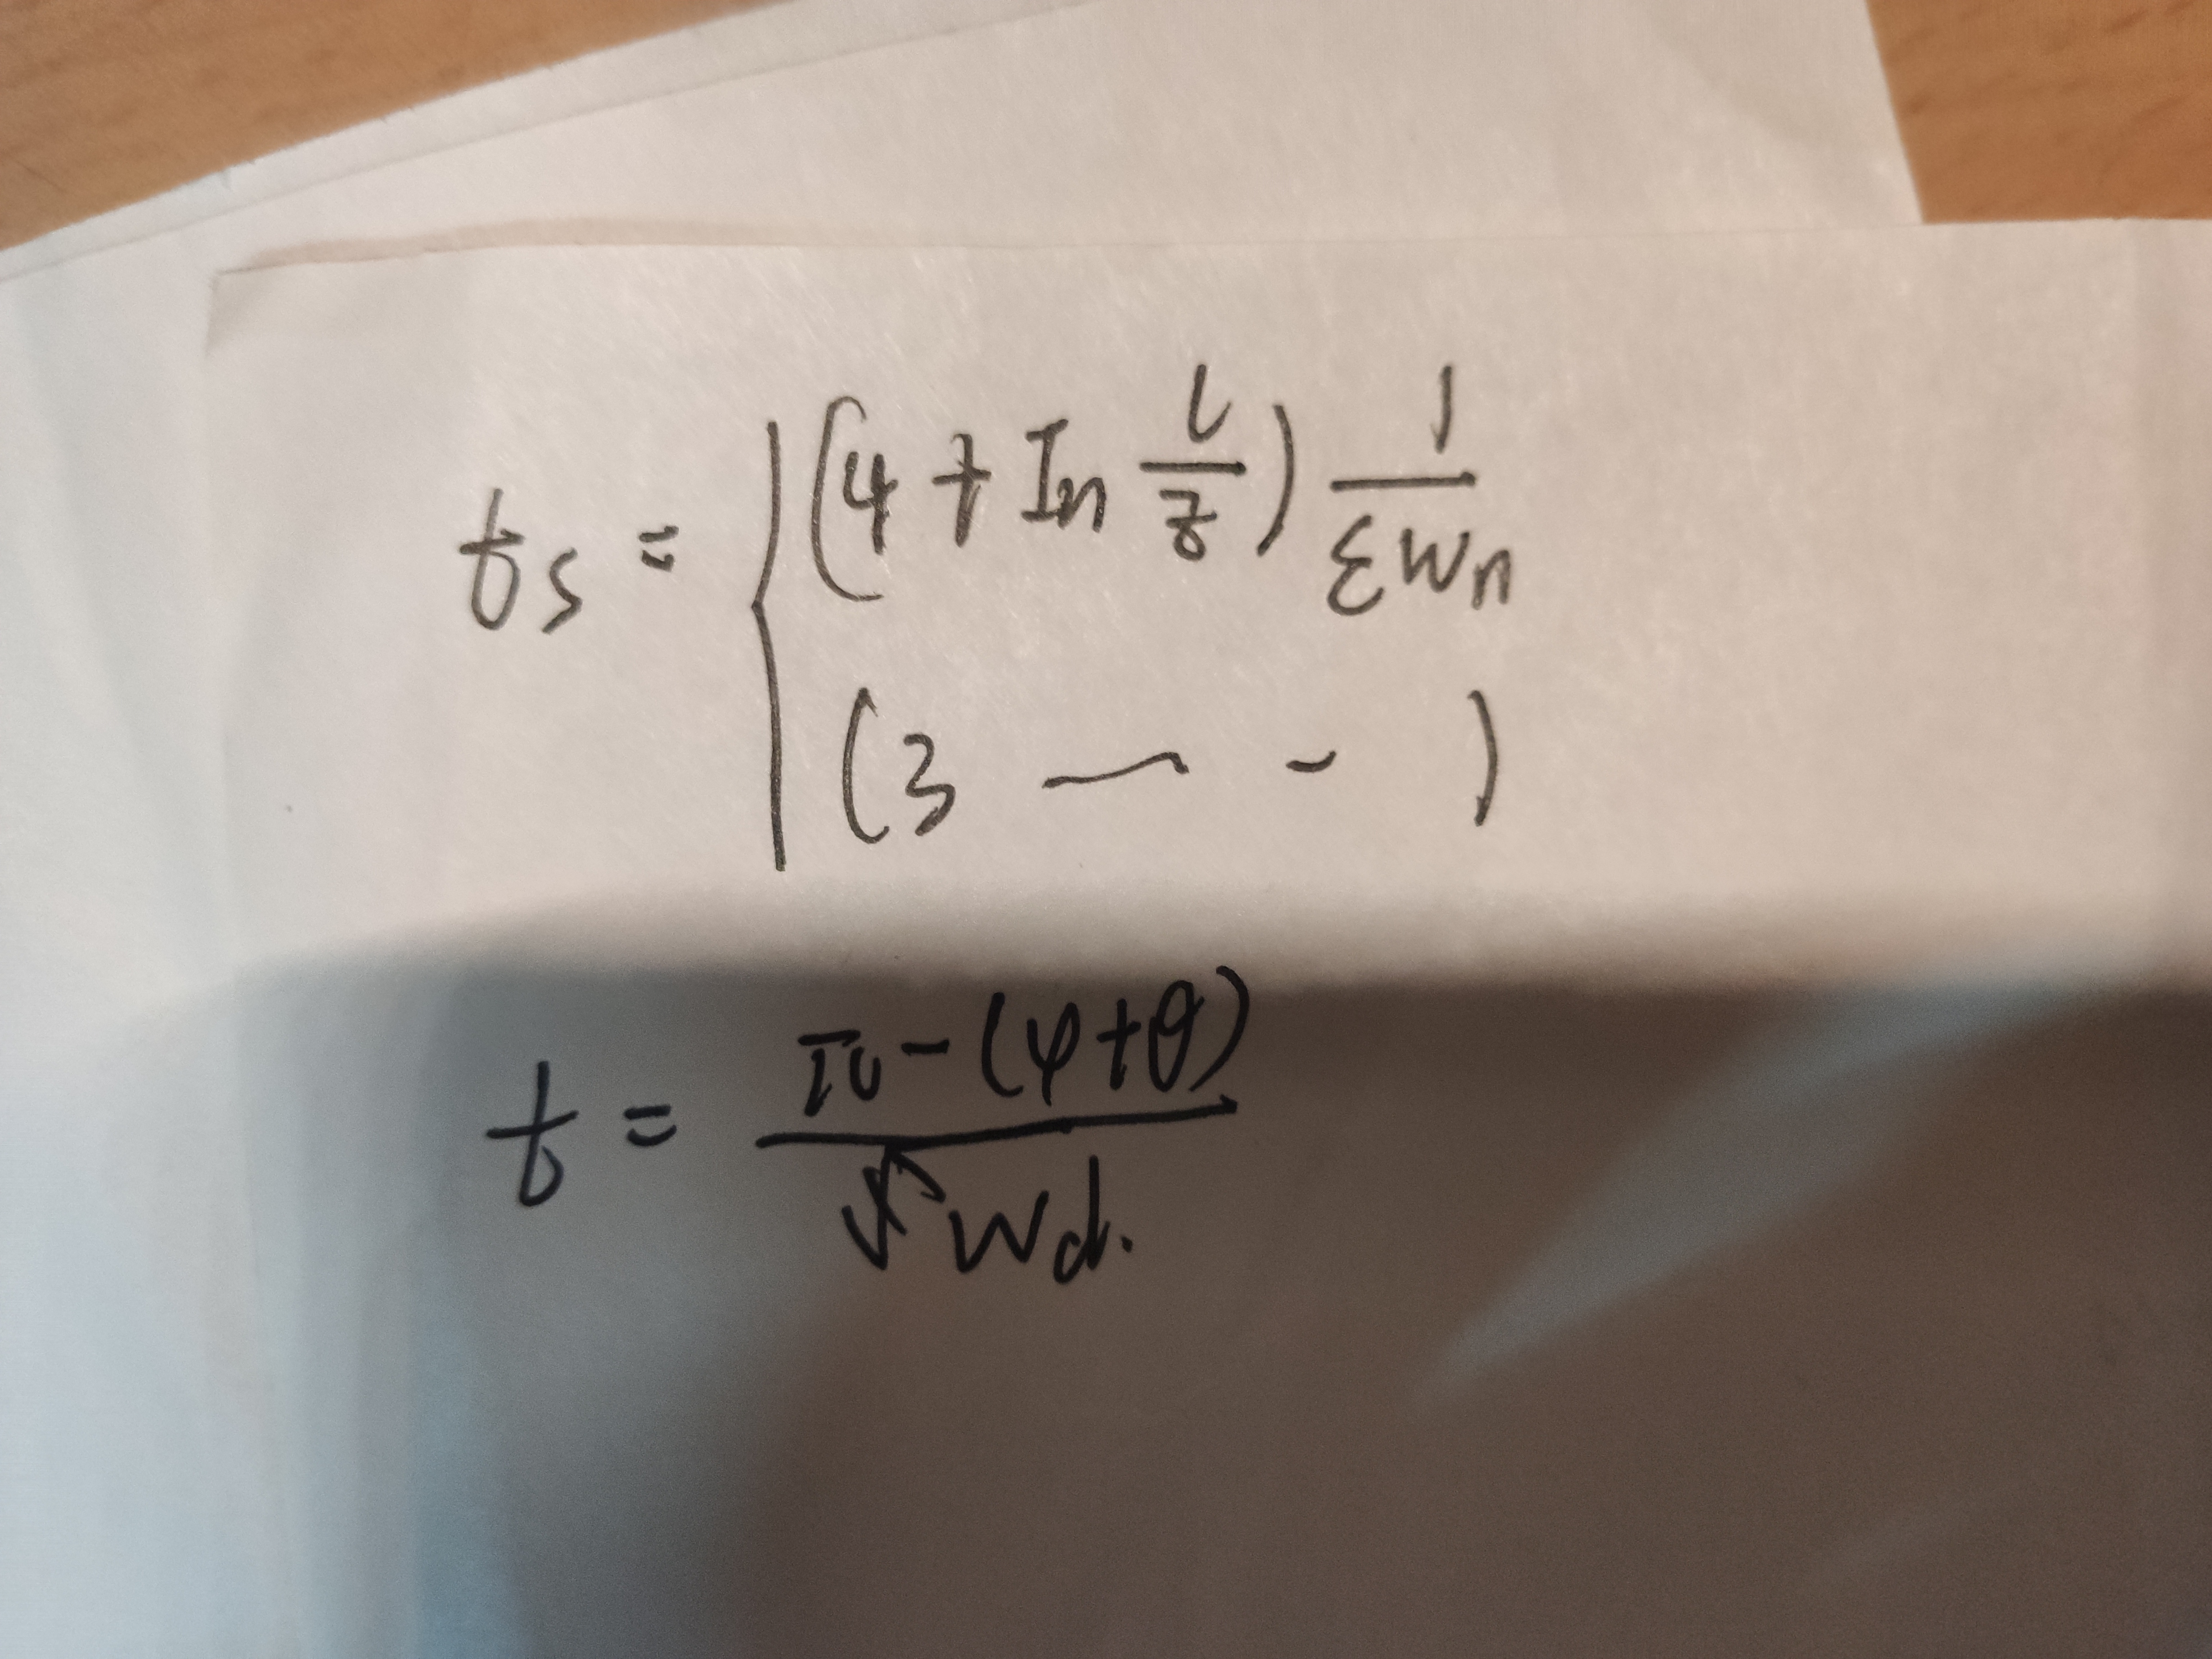 ts = { (4 + ln 1/z) 1/εwn
(3 — - )
t = π - (φ+θ) / wd.